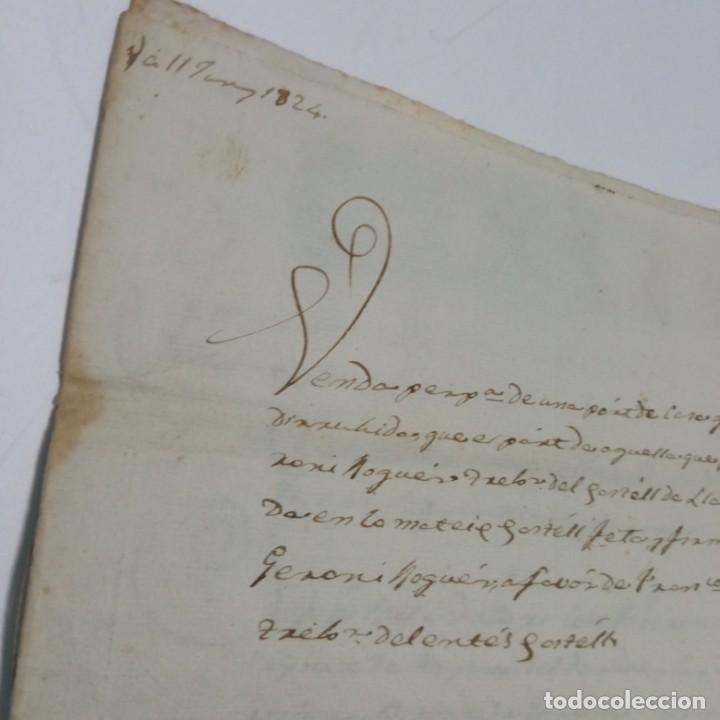 à 11 Juny 1824.
Venda perp.ª de una párt de casa
dirruhida, que es párt de aquella que
roni Noguér Trebr. del Castéll de Lla
da en lo mateix Castéll feta, y firm
Geroni Noguér, a favór de Franco
Trebr. del entés Castéll
todocoleccion.net